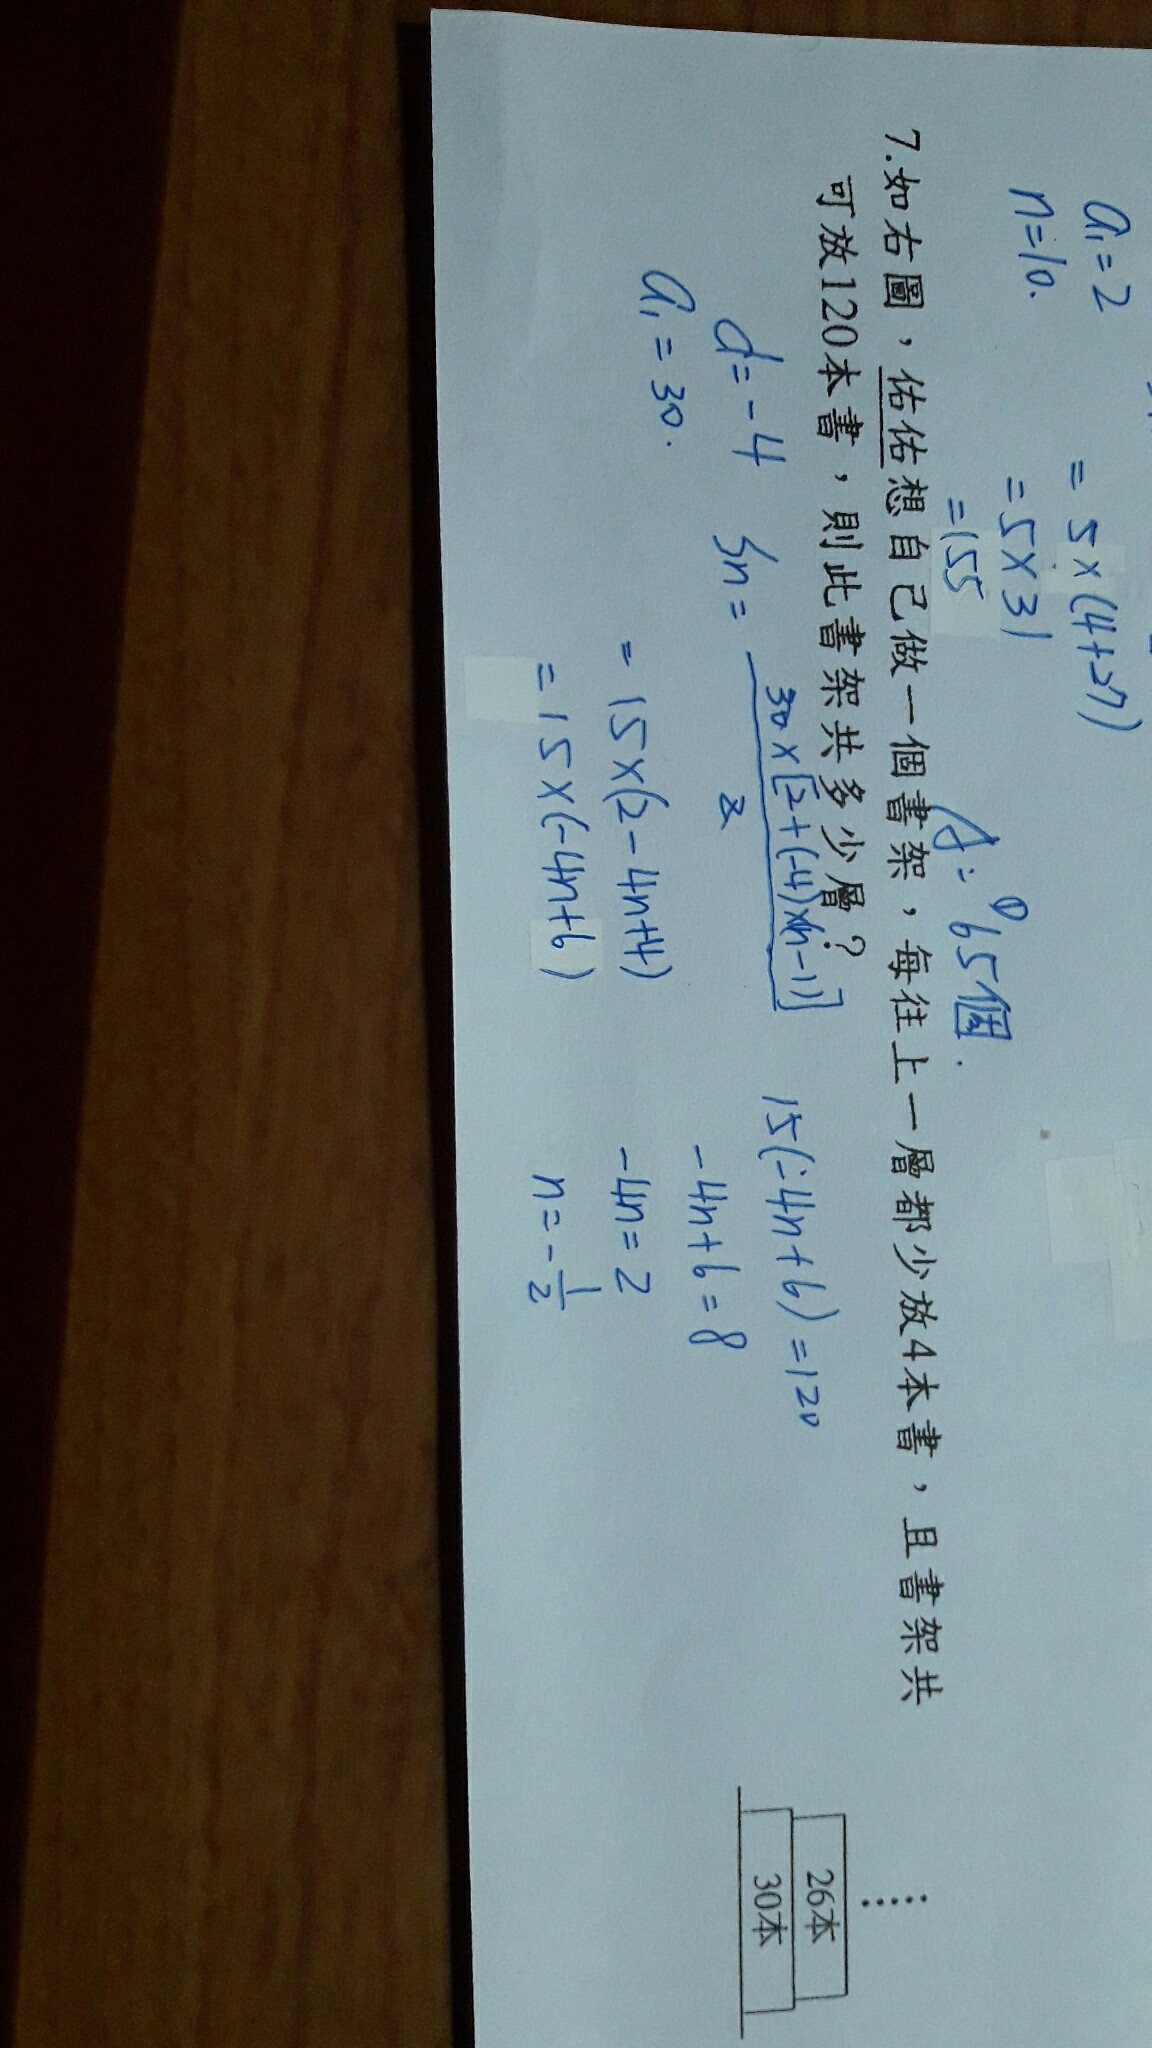 a₁=2
n=10.
= 5×(4+27)
=5×31
=155
A: 165個.
7.如右圖，佑佑想自己做一個書架，每往上一層都少放4本書，且書架共
可放120本書，則此書架共多少層？
d=-4
a₁=30.
Sn= 30×[2+(-4)×(n-1)]
2
=15×(2-4n+4)
=15×(-4n+6)
15(-4n+6)=120
-4n+6=8
-4n=2
n=-1/2
⋮
26本
30本